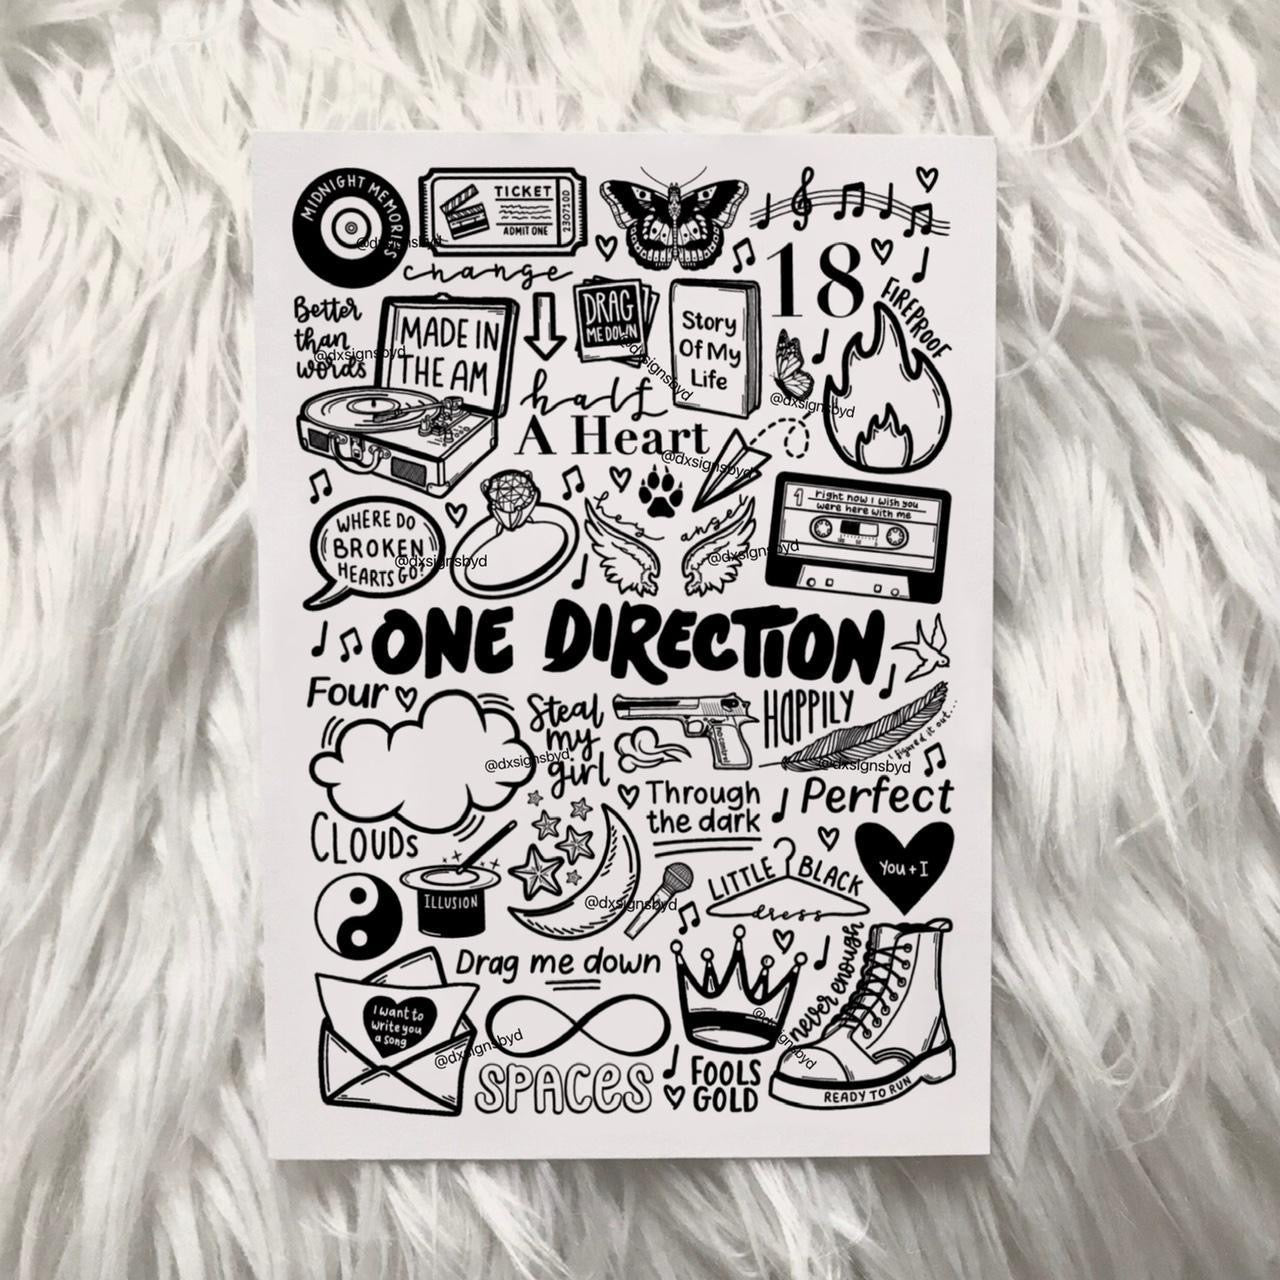 MIDNIGHT MEMORIES
TICKET
ADMIT ONE
230710D
@dxsignsbyd
change
18
FIREPROOF
Better
than
words
@dxsignsbyd
MADE IN
THE AM
DRAG
ME DOWN
@dxsignsbyd
Story
Of My
Life
@dxsignsbyd
half
A Heart
@dxsignsbyd
WHERE DO
BROKEN
HEARTS GO?
@dxsignsbyd
he's angel
@dxsignsbyd
1 right now I wish you
were here with me
ONE DIRECTION
Four
Steal
my
girl
@dxsignsbyd
no control
HAPPILY
i figured it out...
@dxsignsbyd
CLOUDS
Through
the dark
Perfect
ILLUSION
@dxsignsbyd
LITTLE BLACK
dress
You + I
Drag me down
never enough
@dxsignsbyd
I want to
write you
a song
@dxsignsbyd
SPACES
FOOLS
GOLD
READY TO RUN